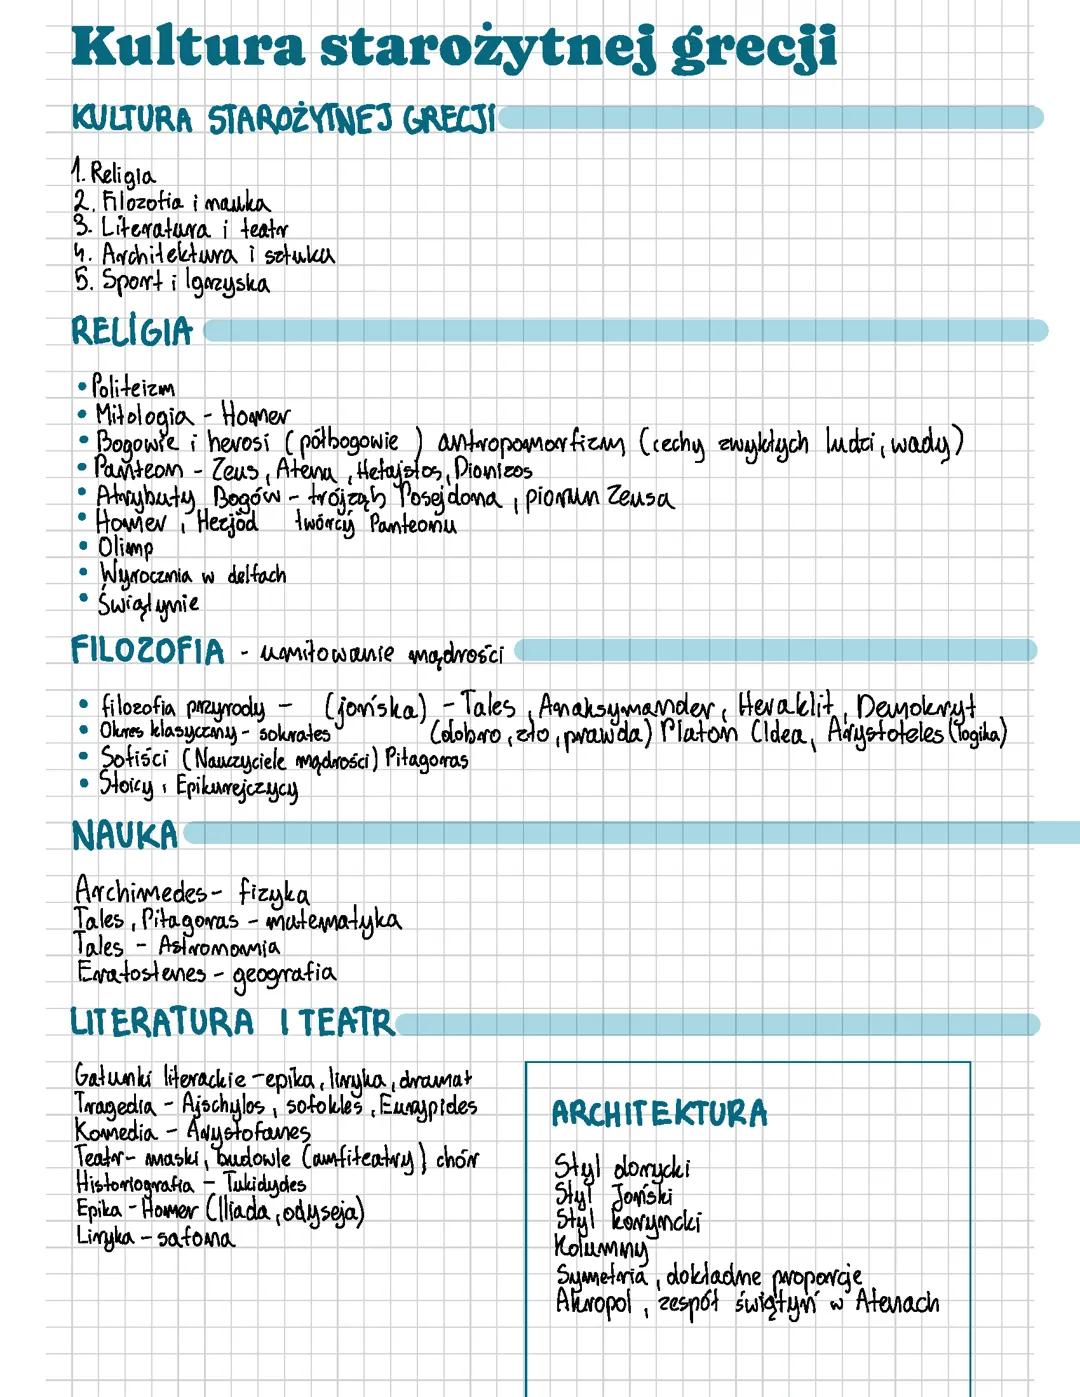 Kultura starożytnej grecji
KULTURA STAROŻYTNEJ GRECJI
1. Religia
2. Filozofia i nauka
3. Literatura i teatr
4. Architektura i sztuka
5. Sport i Igrzyska
RELIGIA
• Politeizm
• Mitologia - Homer
• Bogowie i herosi (półbogowie) antropomorfizm (cechy zwykłych ludzi, wady)
• Panteon - Zeus, Atena, Hefajstos, Dionizos
• Atrybuty Bogów - trójząb Posejdona, piorun Zeusa
• Homer, Hezjod twórcy Panteonu
• Olimp
• Wyrocznia w delfach
• Świątynie
FILOZOFIA - umiłowanie mądrości
• filozofia przyrody - (jońska) - Tales, Anaksymander, Heraklit, Demokryt
• Okres klasyczny - sokrates (dobro, zło, prawda) Platon (Idea, Arystoteles (logika)
• Sofiści (Nauczyciele mądrości) Pitagoras
• Stoicy, Epikurejczycy
NAUKA
Archimedes - fizyka
Tales, Pitagoras - matematyka
Tales - Astronomia
Eratostenes - geografia
LITERATURA I TEATR
Gatunki literackie - epika, liryka, dramat
Tragedia - Ajschylos, sofokles, Eurypides
Komedia - Arystofanes
Teatr - maski, budowle (amfiteatry) chór
Historiografia - Tukidydes
Epika - Homer (Iliada, odyseja)
Liryka - safona
ARCHITEKTURA
Styl dorycki
Styl Joński
Styl koryncki
Kolumny
Symetria, dokładne proporcje
Akropol, zespół świątyń w Atenach